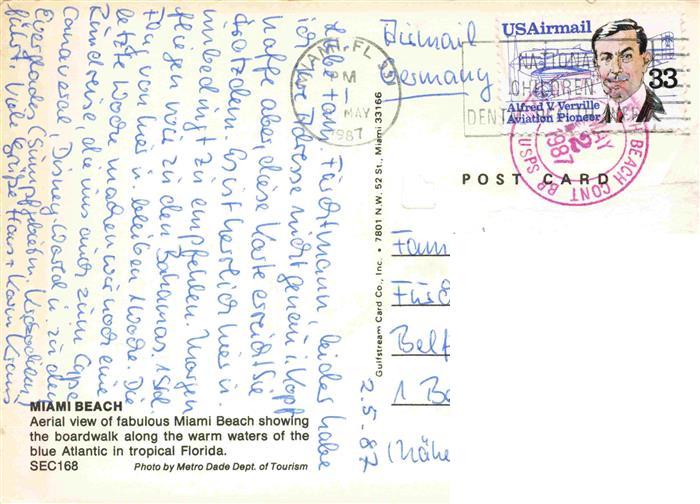 Liebe Fam. Fürchtmann, leider habe
ich Ihre Adresse nicht genau i. Kopf
hoffe aber, diese Karte erreicht Sie
trotzdem. Es ist herrlich hier u.
unbedingt zu empfehlen. Morgen
fliegen wir zu den Bahamas. 1 Std.
Flug von hier u. bleiben 1 Woche. Die
letzte Woche machen wir noch eine
Rundreise, die uns auch zum Cape
Canaveral, Disney World u. zu den
Everglades (Sumpfgebiet m. Krokodilen)
führt. Viele Grüße Hans + Karin
MIAMI BEACH
Aerial view of fabulous Miami Beach showing
the boardwalk along the warm waters of the
blue Atlantic in tropical Florida.
SEC168
Photo by Metro Dade Dept. of Tourism
Gulfstream Card Co., Inc. • 7801 N.W. 52 St., Miami 33166
MIAMI, FL 331
PM
1
MAY
1987
Airmail
Germany
USAirmail
33
Alfred V. Verville
Aviation Pioneer
NATIONA
CHILDREN'S
DENT
BEACH CONT BR USPS
MAY
2
1987
POST CARD
Fam
Für
Belf
1 Be
(Nähe
2.5.87